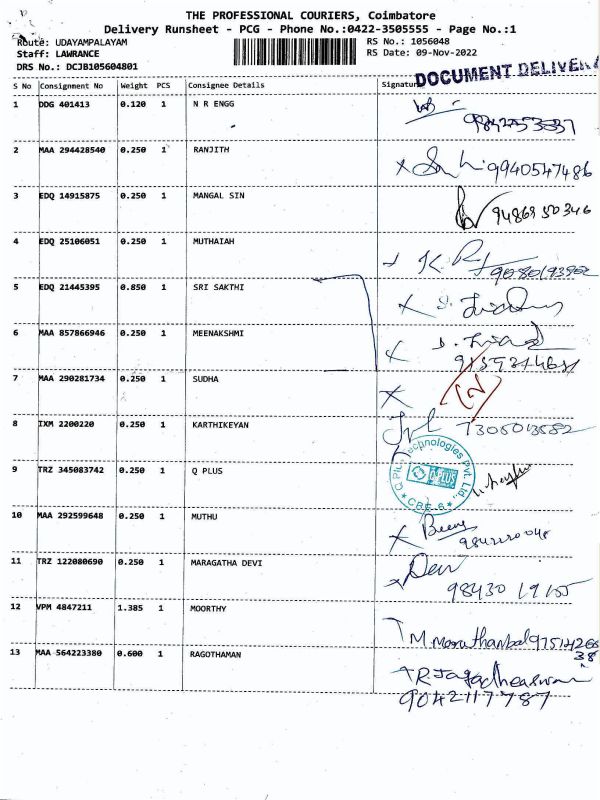 THE PROFESSIONAL COURIERS, Coimbatore
Delivery Runsheet - PCG - Phone No.:0422-3505555 - Page No.:1
Route: UDAYAMPALAYAM RS No.: 1056048
Staff: LAWRANCE RS Date: 09-Nov-2022
DRS No.: DCJB105604801
DOCUMENT DELIVER
S No Consignment No Weight PCS Consignee Details Signature
1 DDG 401413 0.120 1 N R ENGG
2 MAA 294428540 0.250 1 RANJITH 9940547486
3 EDQ 14915875 0.250 1 MANGAL SIN 9486950346
4 EDQ 25106051 0.250 1 MUTHAIAH
5 EDQ 21445395 0.850 1 SRI SAKTHI
6 MAA 857866946 0.250 1 MEENAKSHMI
7 MAA 290281734 0.250 1 SUDHA
8 IXM 2200220 0.250 1 KARTHIKEYAN 7305013582
9 TRZ 345083742 0.250 1 Q PLUS
Q Plus Technologies Pvt. Ltd.
Q-PLUS
CBE-6
10 MAA 292599648 0.250 1 MUTHU
11 TRZ 122080690 0.250 1 MARAGATHA DEVI Devi
12 VPM 4847211 1.385 1 MOORTHY
13 MAA 564223380 0.600 1 RAGOTHAMAN
9042117787